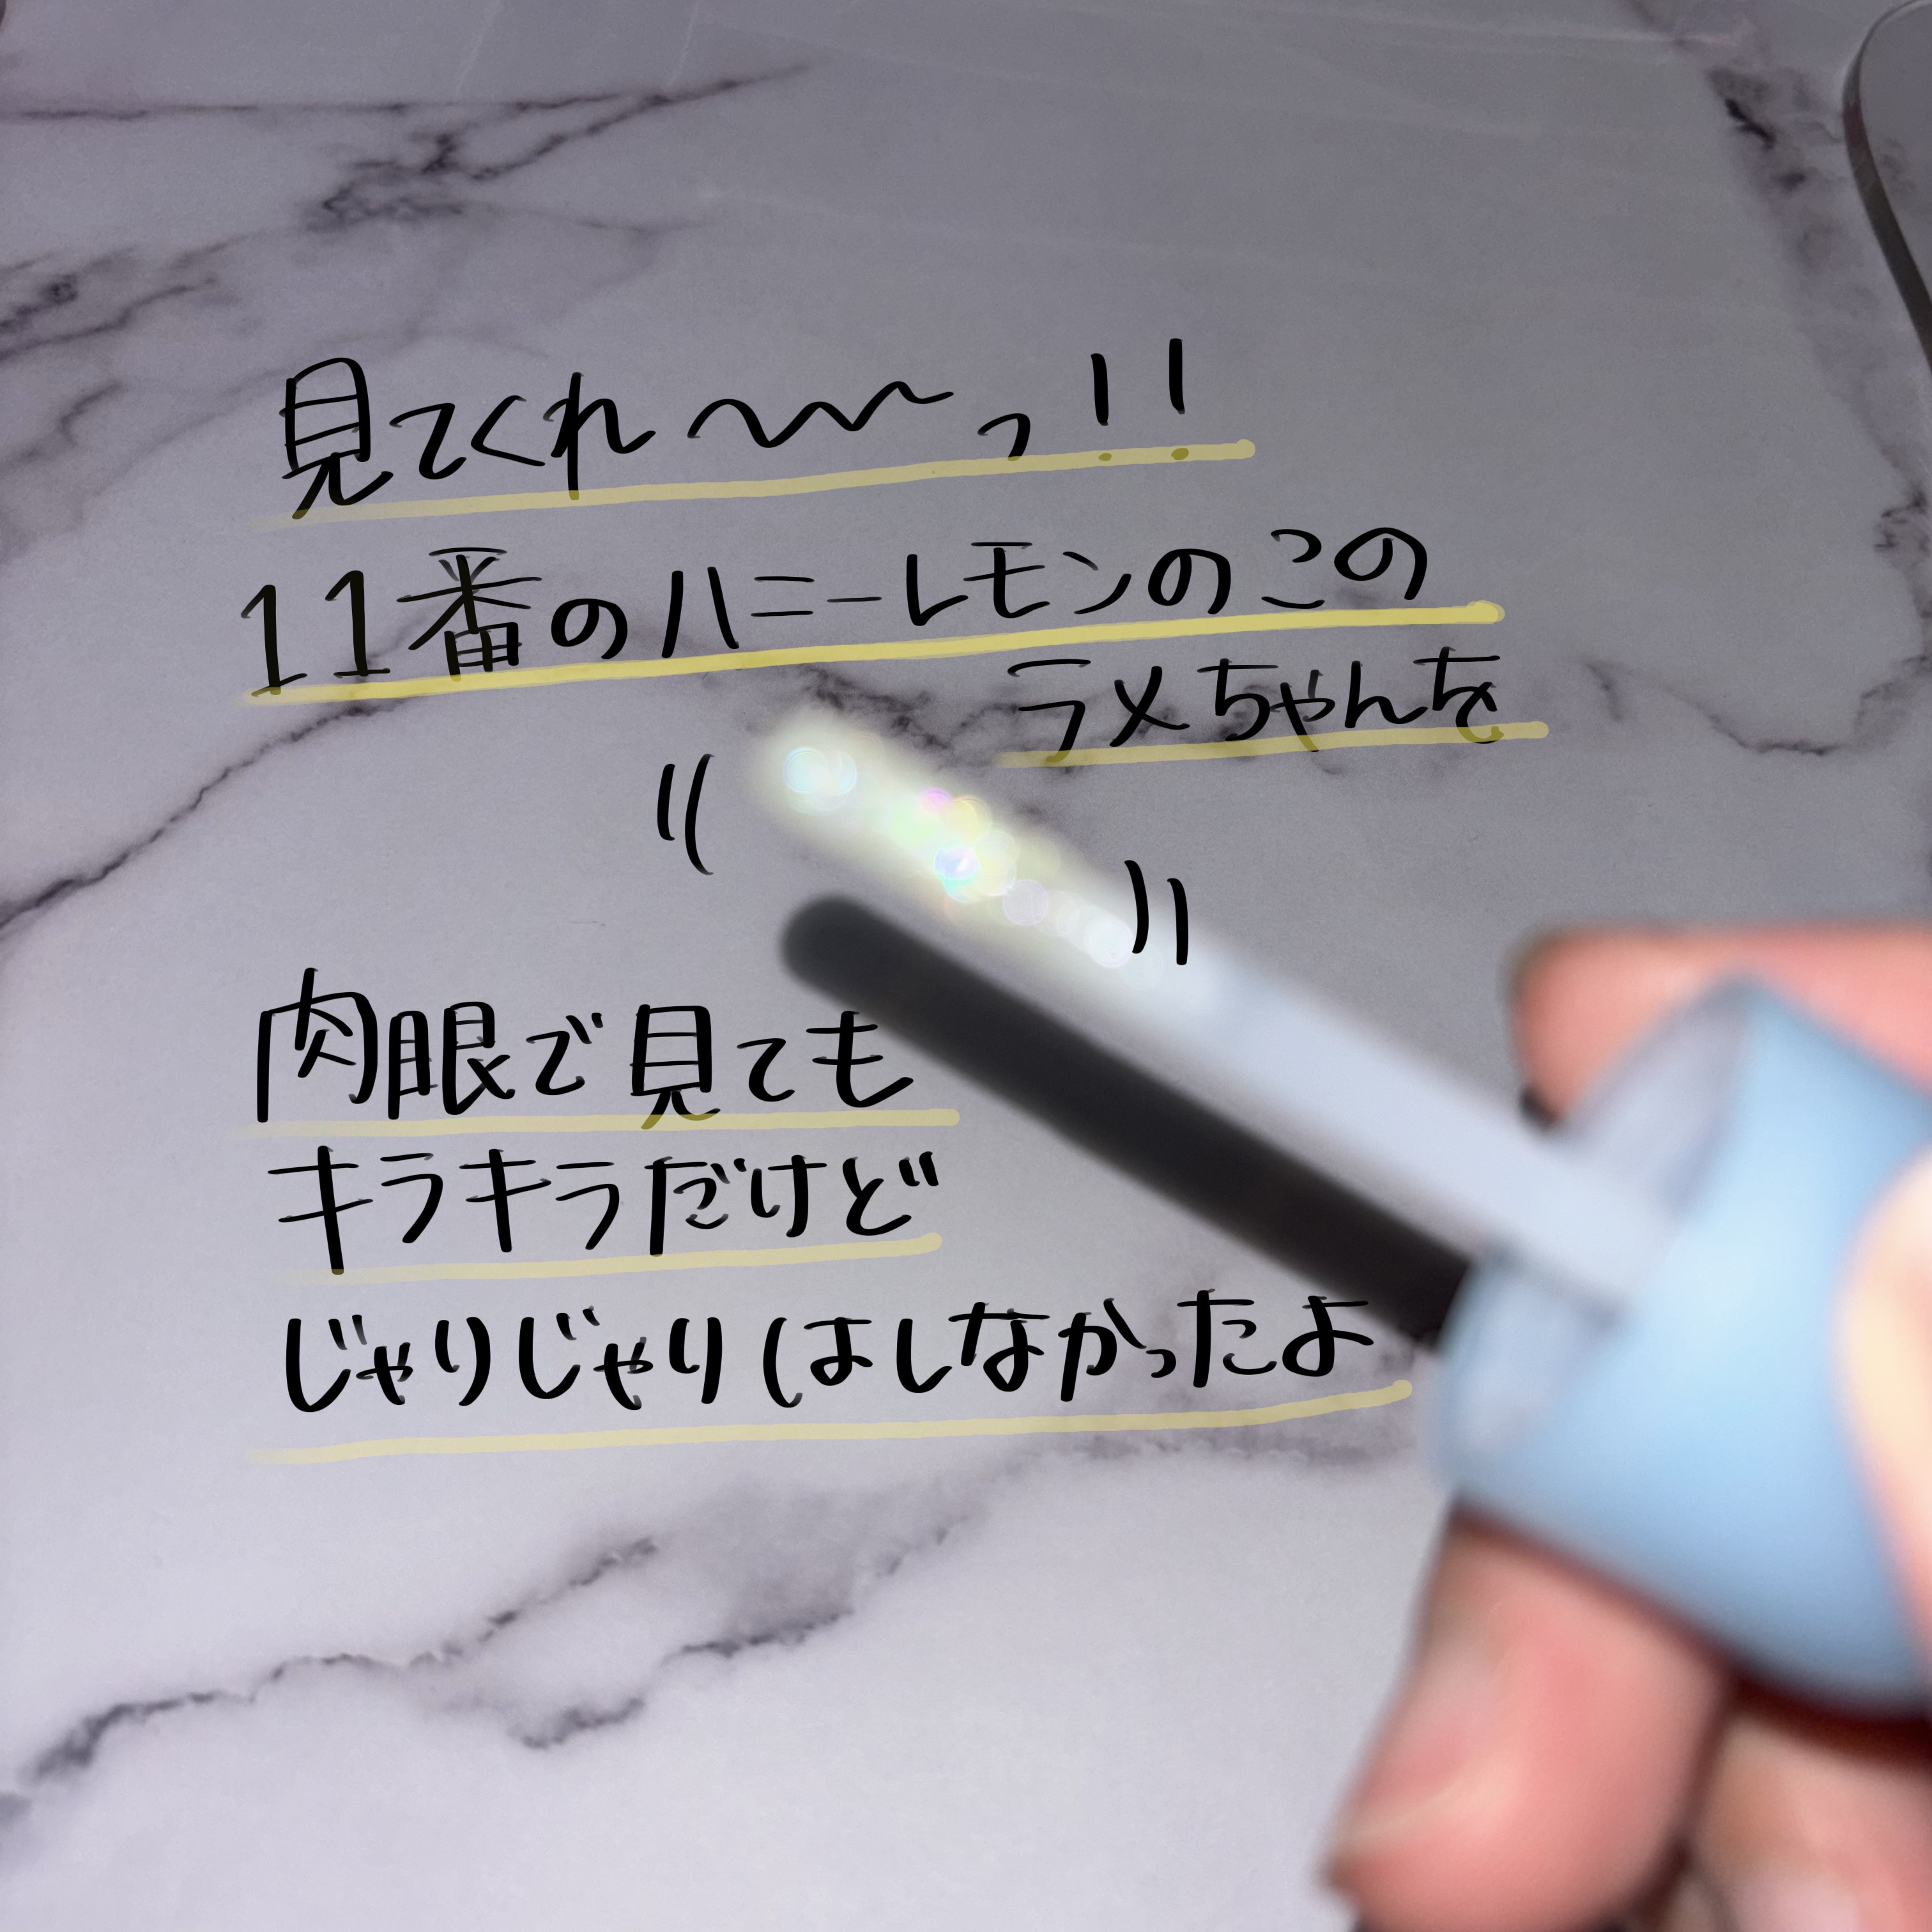 見てくれ〜〜っ!!
11番のハニーレモンのこの
ラメちゃんを
肉眼で見ても
キラキラだけど
じゃりじゃりはしなかったよ